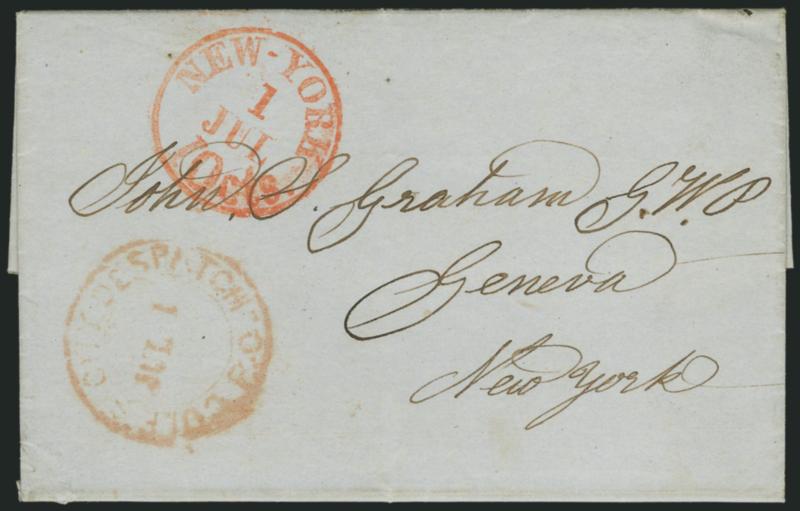 NEW-YORK
1
JUL
10 cts
John, S. Graham G.W.P
Geneva
New York
CITY DESPATCH P.O.
JUL 1